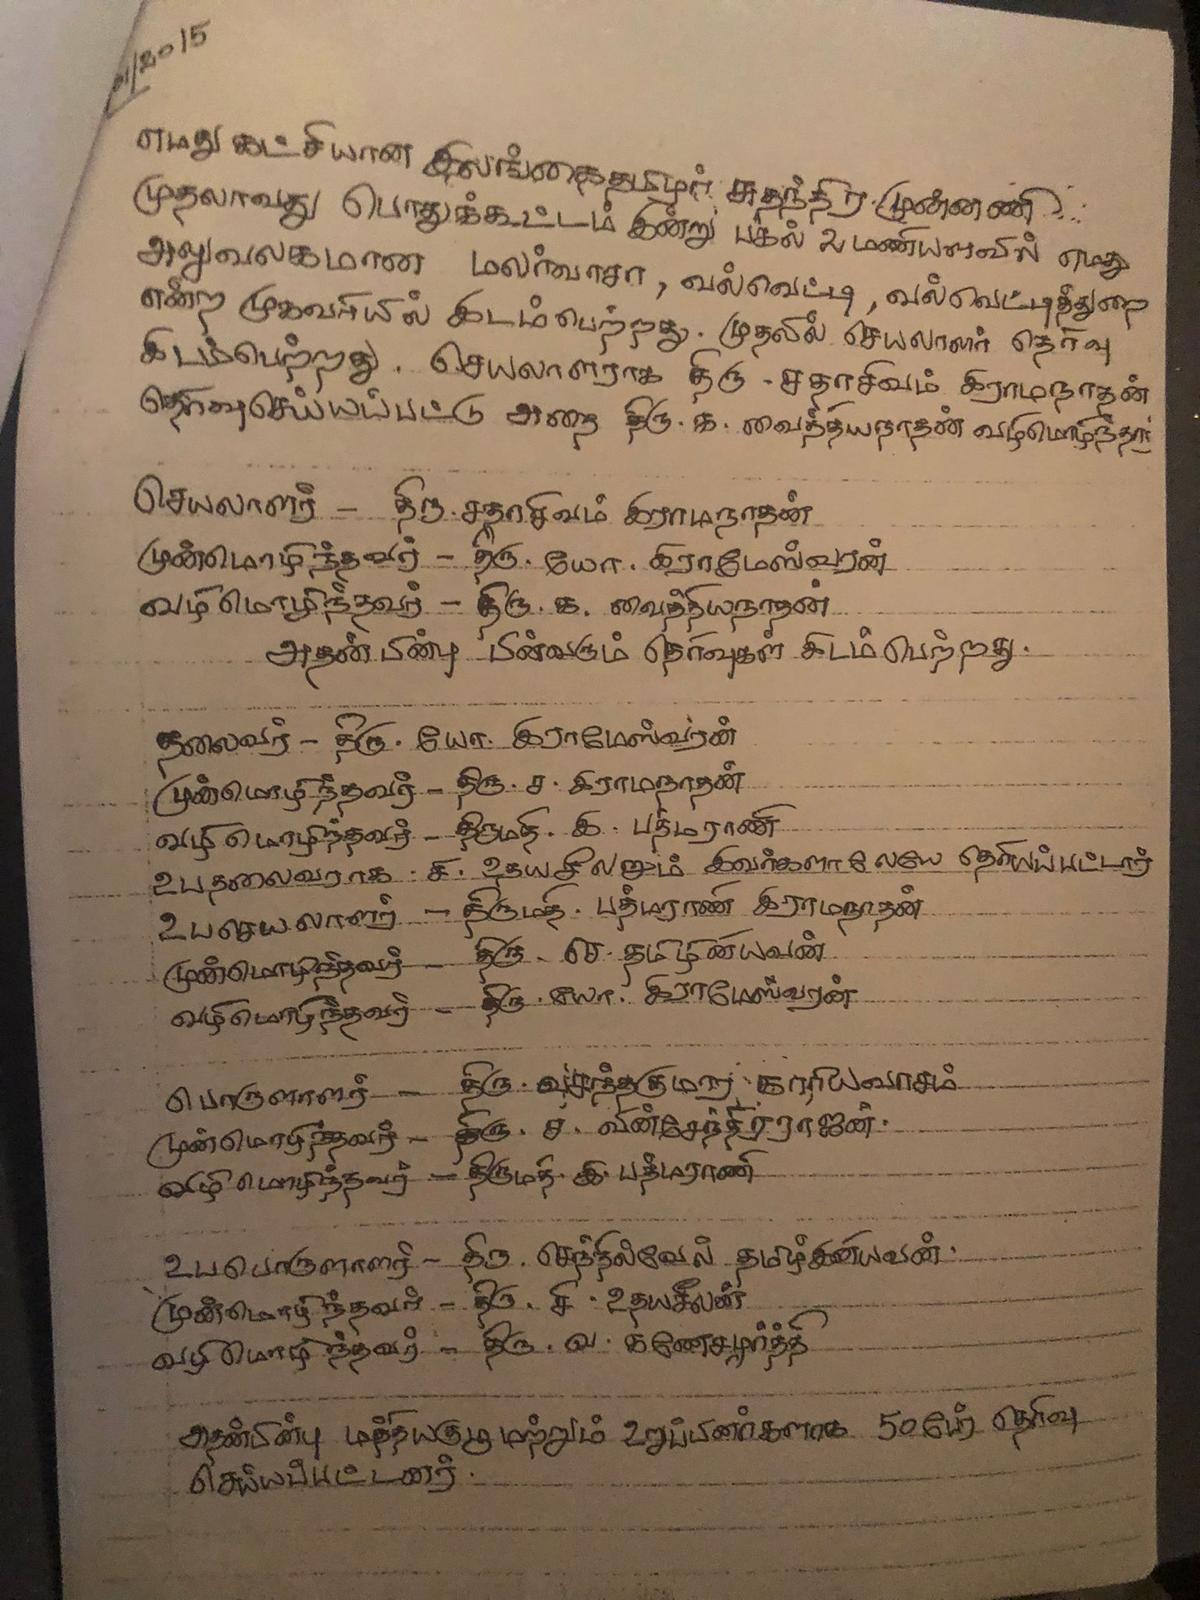 /2015
எமது கட்சியான இலங்கைதமிழர் சுதந்திர முன்னணி
முதலாவது பொதுக்கூட்டம் இன்று பகல் 2 மணியளவில் எமது
அலுவலகமான மலர்வாசா, வல்வெட்டி, வல்வெட்டித்துறை
என்ற முகவரியில் இடம்பெற்றது. முதலில் செயலாளர் தெரிவு
இடம்பெற்றது. செயலாளராக திரு. சதாசிவம் இராமநாதன்
தெரிவுசெய்யப்பட்டு அதை திரு. க. வைத்தியநாதன் வழிமொழிந்தார்
செயலாளர் - திரு. சதாசிவம் இராமநாதன்
முன்மொழிந்தவர் - திரு. யோ. இராமேஸ்வரன்
வழிமொழிந்தவர் - திரு. க. வைத்தியநாதன்
அதன்பின்பு பின்வரும் தெரிவுகள் இடம்பெற்றது.
தலைவர் - திரு. யோ. இராமேஸ்வரன்
முன்மொழிந்தவர் - திரு. ச. இராமநாதன்
வழிமொழிந்தவர் - திருமதி. இ. பத்மராணி
உபதலைவராக. சி. உதயசீலனும் இவர்களாலேயே தெரியப்பட்டார்
உபசெயலாளர் - திருமதி. பத்மராணி இராமநாதன்
முன்மொழிந்தவர் - திரு. செ. தமிழினியவன்
வழிமொழிந்தவர் - திரு. யோ. இராமேஸ்வரன்
பொருளாளர் - திரு. வசந்தகுமார் காரியவாசம்
முன்மொழிந்தவர் - திரு. ச. வின்சேந்திரராஜன்.
வழிமொழிந்தவர் - திருமதி. இ. பத்மராணி
உபபொருளாளர் - திரு. செந்தில்வேல் தமிழ்இனியவன்.
முன்மொழிந்தவர் - திரு. சி. உதயசீலன்
வழிமொழிந்தவர் - திரு. வ. கணேசமூர்த்தி
அதன்பின்பு மத்தியகுழு மற்றும் உறுப்பினர்களாக 50 பேர் தெரிவு
செய்யப்பட்டனர்.